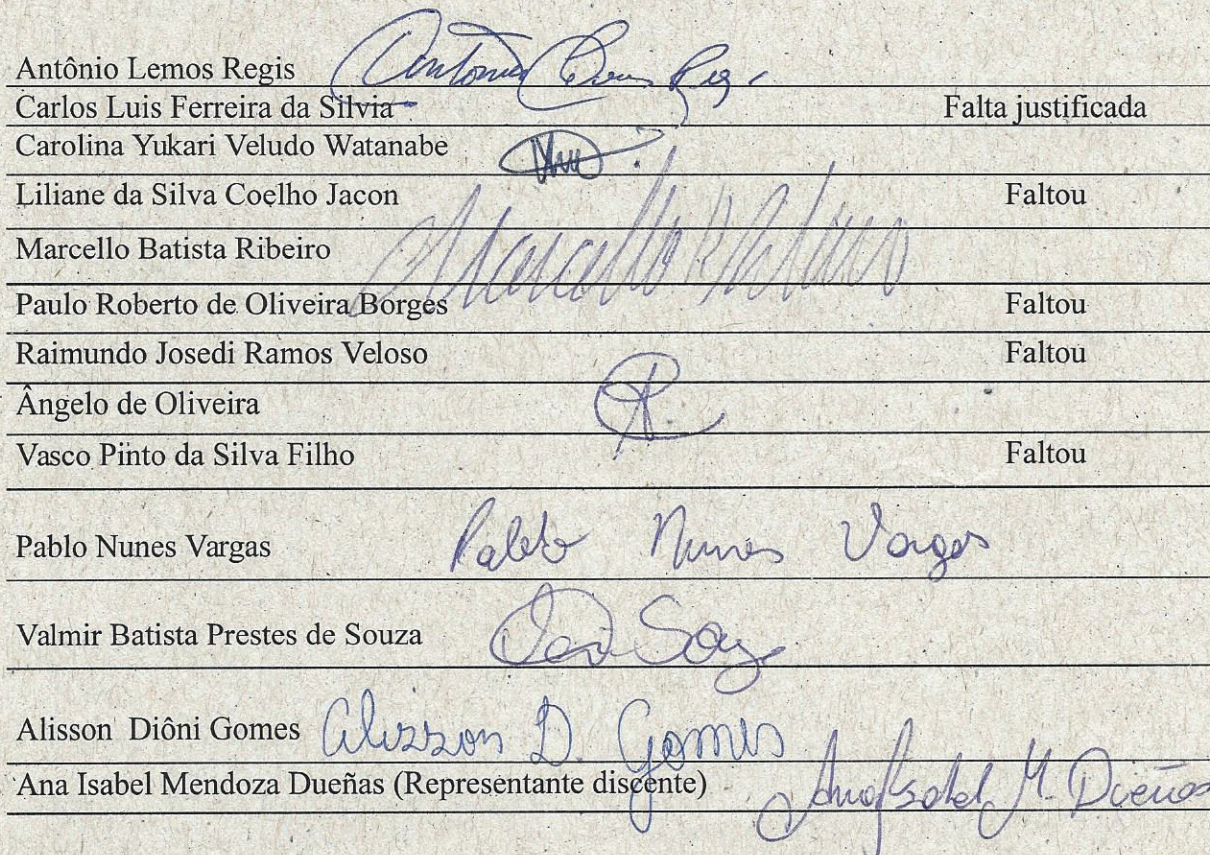 Antônio Lemos Regis Antonio Lemos Regis
Carlos Luis Ferreira da Silvia Falta justificada
Carolina Yukari Veludo Watanabe
Liliane da Silva Coelho Jacon Faltou
Marcello Batista Ribeiro Marcello
Paulo Roberto de Oliveira Borges Faltou
Raimundo Josedi Ramos Veloso Faltou
Ângelo de Oliveira
Vasco Pinto da Silva Filho Faltou
Pablo Nunes Vargas Pablo Nunes Vargas
Valmir Batista Prestes de Souza
Alisson Diôni Gomes Alisson D. Gomes
Ana Isabel Mendoza Dueñas (Representante discente) Ana Isabel M. Dueñas